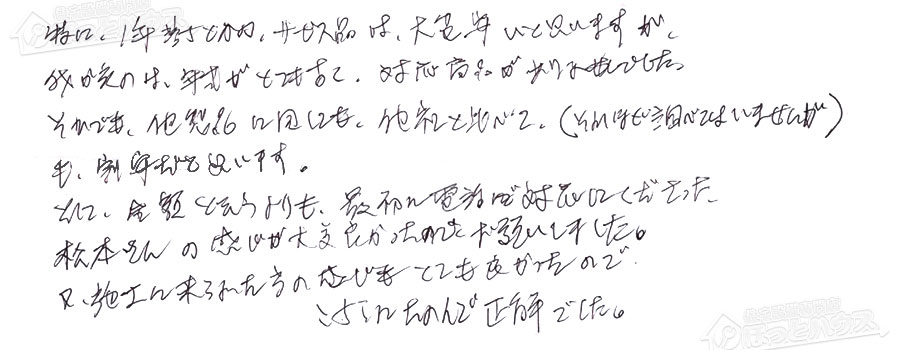 特に、1年落ちとかの、サービス品は、大変安いと思いますが、
我が家のは、年式がとても古く、対応商品がありませんでした。
それでも、他製品に関しても、他社と比べて、(それほど調べてはいませんが)
も、割安だと思います。
そして、金額と言うよりも、最初に電話で対応してくださった
松本さんの感じが大変良かったのでお願いしました。
又、施工に来られた方の感じもとても良かったので、
こちらにたのんで正解でした。
ほっとハウス